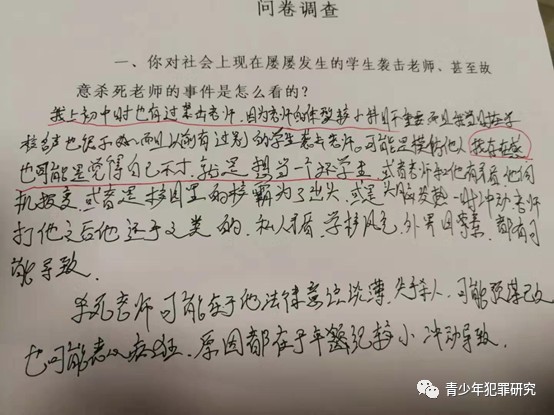 问卷调查
一、你对社会上现在屡屡发生的学生袭击老师、甚至故
意杀死老师的事件是怎么看的?
我上初中时也有过袭击老师.因为老师的体型较小并且不重要而且我当时在学
校名声也很不好.而且以前有过别的学生袭击老师.可能是模仿他人 找存在感
也可能是觉得自己不才.就是想当一个坏学生 或者老师和他有矛盾他伺
机报复.或者是校园里的校霸为了出头.或是头脑发热一时冲动老师
打他之后他还手之类的.私人矛盾.学校风气.外界因素.都有可
能导致.
杀死老师可能在于他法律意识淡薄.失手杀人.可能预谋已久
也可能丧心病狂.原因都在于年龄较小冲动导致.
青少年犯罪研究